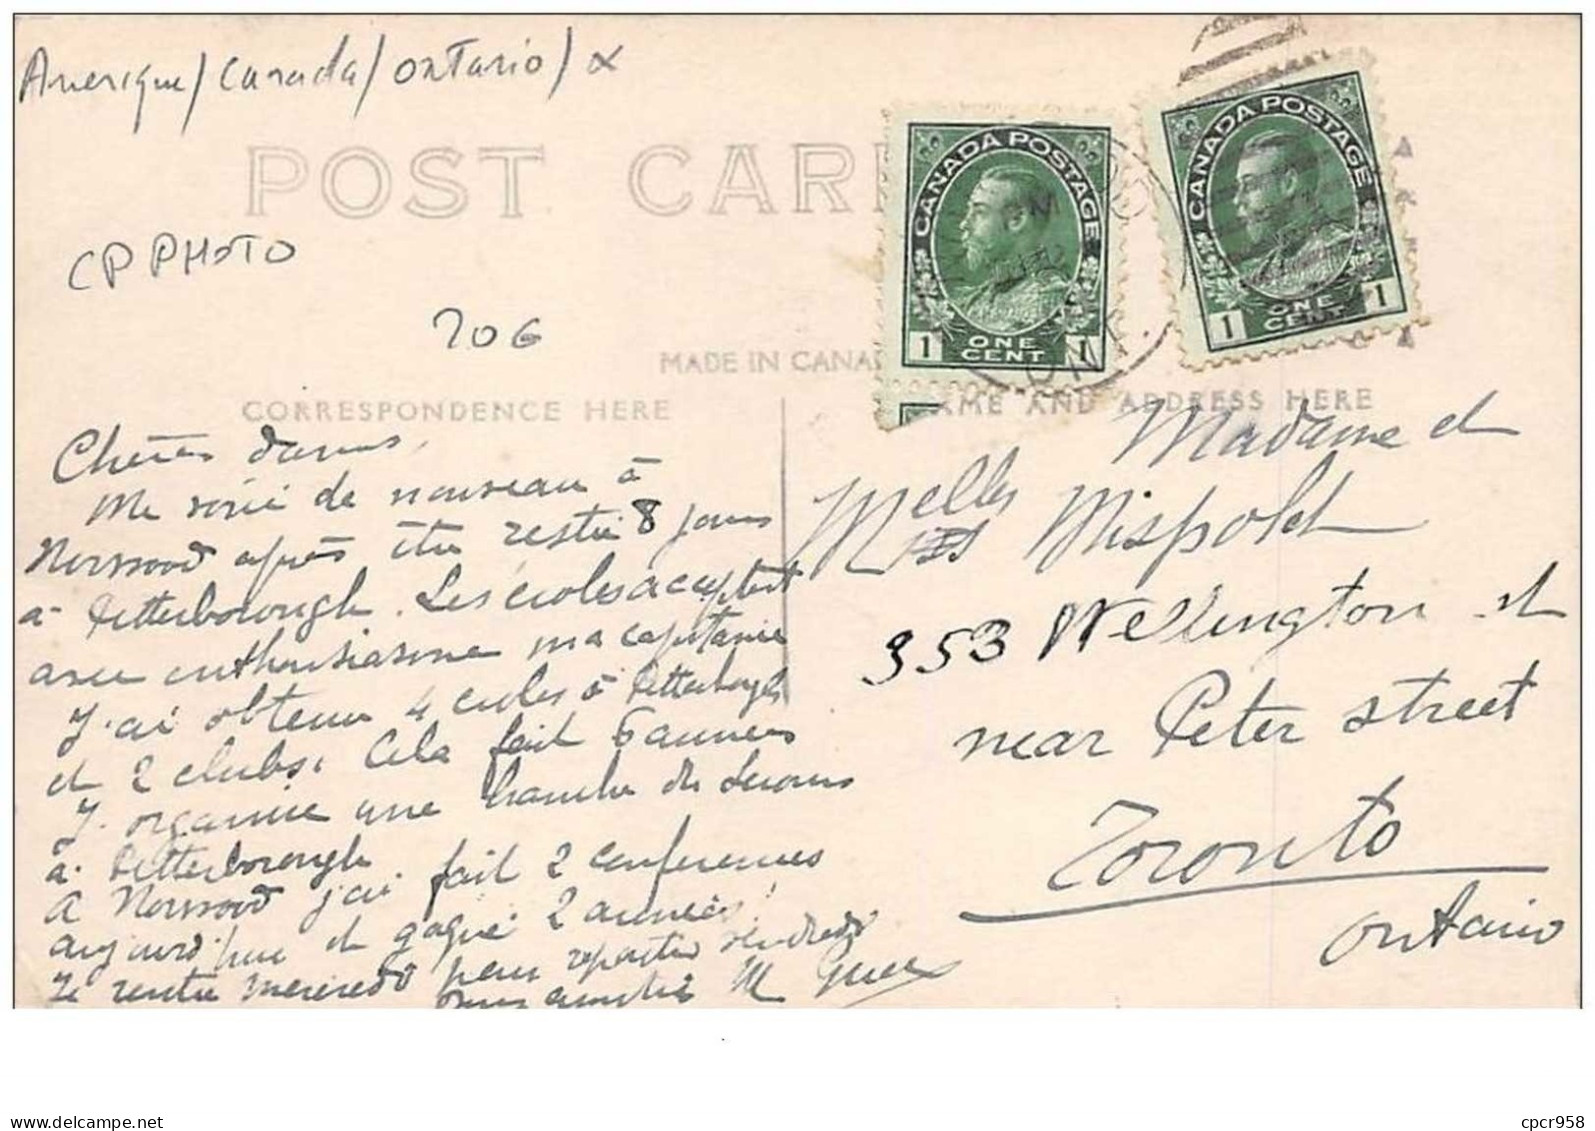 Amerique/Canada/Ontario/α
POST CAR
CP PHOTO
206
MADE IN CANA
CORRESPONDENCE HERE
AME AND ADDRESS HERE
CANADA POSTAGE
1 ONE CENT 1
CANADA POSTAGE
1 ONE CENT 1
ONT.
Chères dames,
Me voici de nouveau à
Norwood après être restée 8 jours
à Petterborough. Les écoles acceptent
avec enthousiasme ma
J'ai obtenu 4 écoles à Petterborough
et 2 clubs. Cela fait 6 années
J'organise une branche de
à Petterborough
A Norwood j'ai fait 2 conferences
aujourd'hui et gagné 2 années!
Je rentre mercredi pour repartir vendredi
M
Madame et
Melles Mispolet
353 Wellington st
near Peter street
Toronto
Ontario
cpcr958